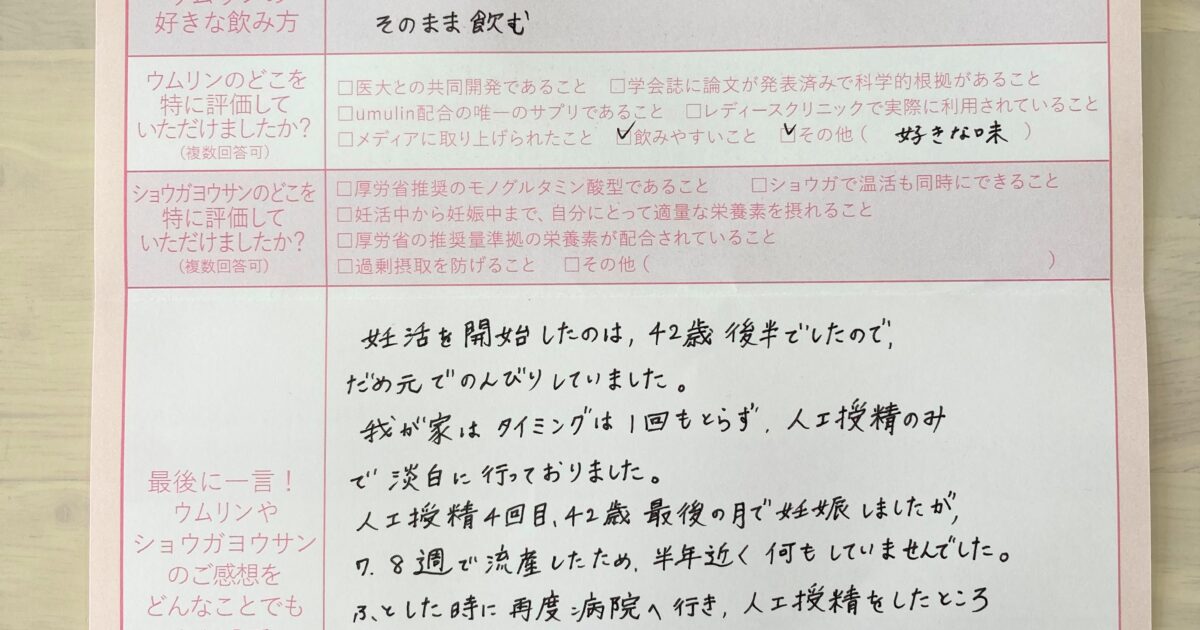 好きな飲み方
そのまま飲む
ウムリンのどこを
特に評価して
いただけましたか?
(複数回答可)
□医大との共同開発であること □学会誌に論文が発表済みで科学的根拠があること
□umulin配合の唯一のサプリであること □レディースクリニックで実際に利用されていること
□メディアに取り上げられたこと ☑飲みやすいこと ☑その他( 好きな味 )
ショウガヨウサンのどこを
特に評価して
いただけましたか?
(複数回答可)
□厚労省推奨のモノグルタミン酸型であること □ショウガで温活も同時にできること
□妊活中から妊娠中まで、自分にとって適量な栄養素を摂れること
□厚労省の推奨量準拠の栄養素が配合されていること
□過剰摂取を防げること □その他( )
最後に一言!
ウムリンや
ショウガヨウサン
のご感想を
どんなことでも
妊活を開始したのは,42歳後半でしたので,
だめ元でのんびりしていました。
我が家はタイミングは1回もとらず,人工授精のみ
で淡白に行っておりました。
人工授精4回目、42歳最後の月で妊娠しましたが,
7.8週で流産したため,半年近く何もしていませんでした。
ふとした時に再度病院へ行き,人工授精をしたところ